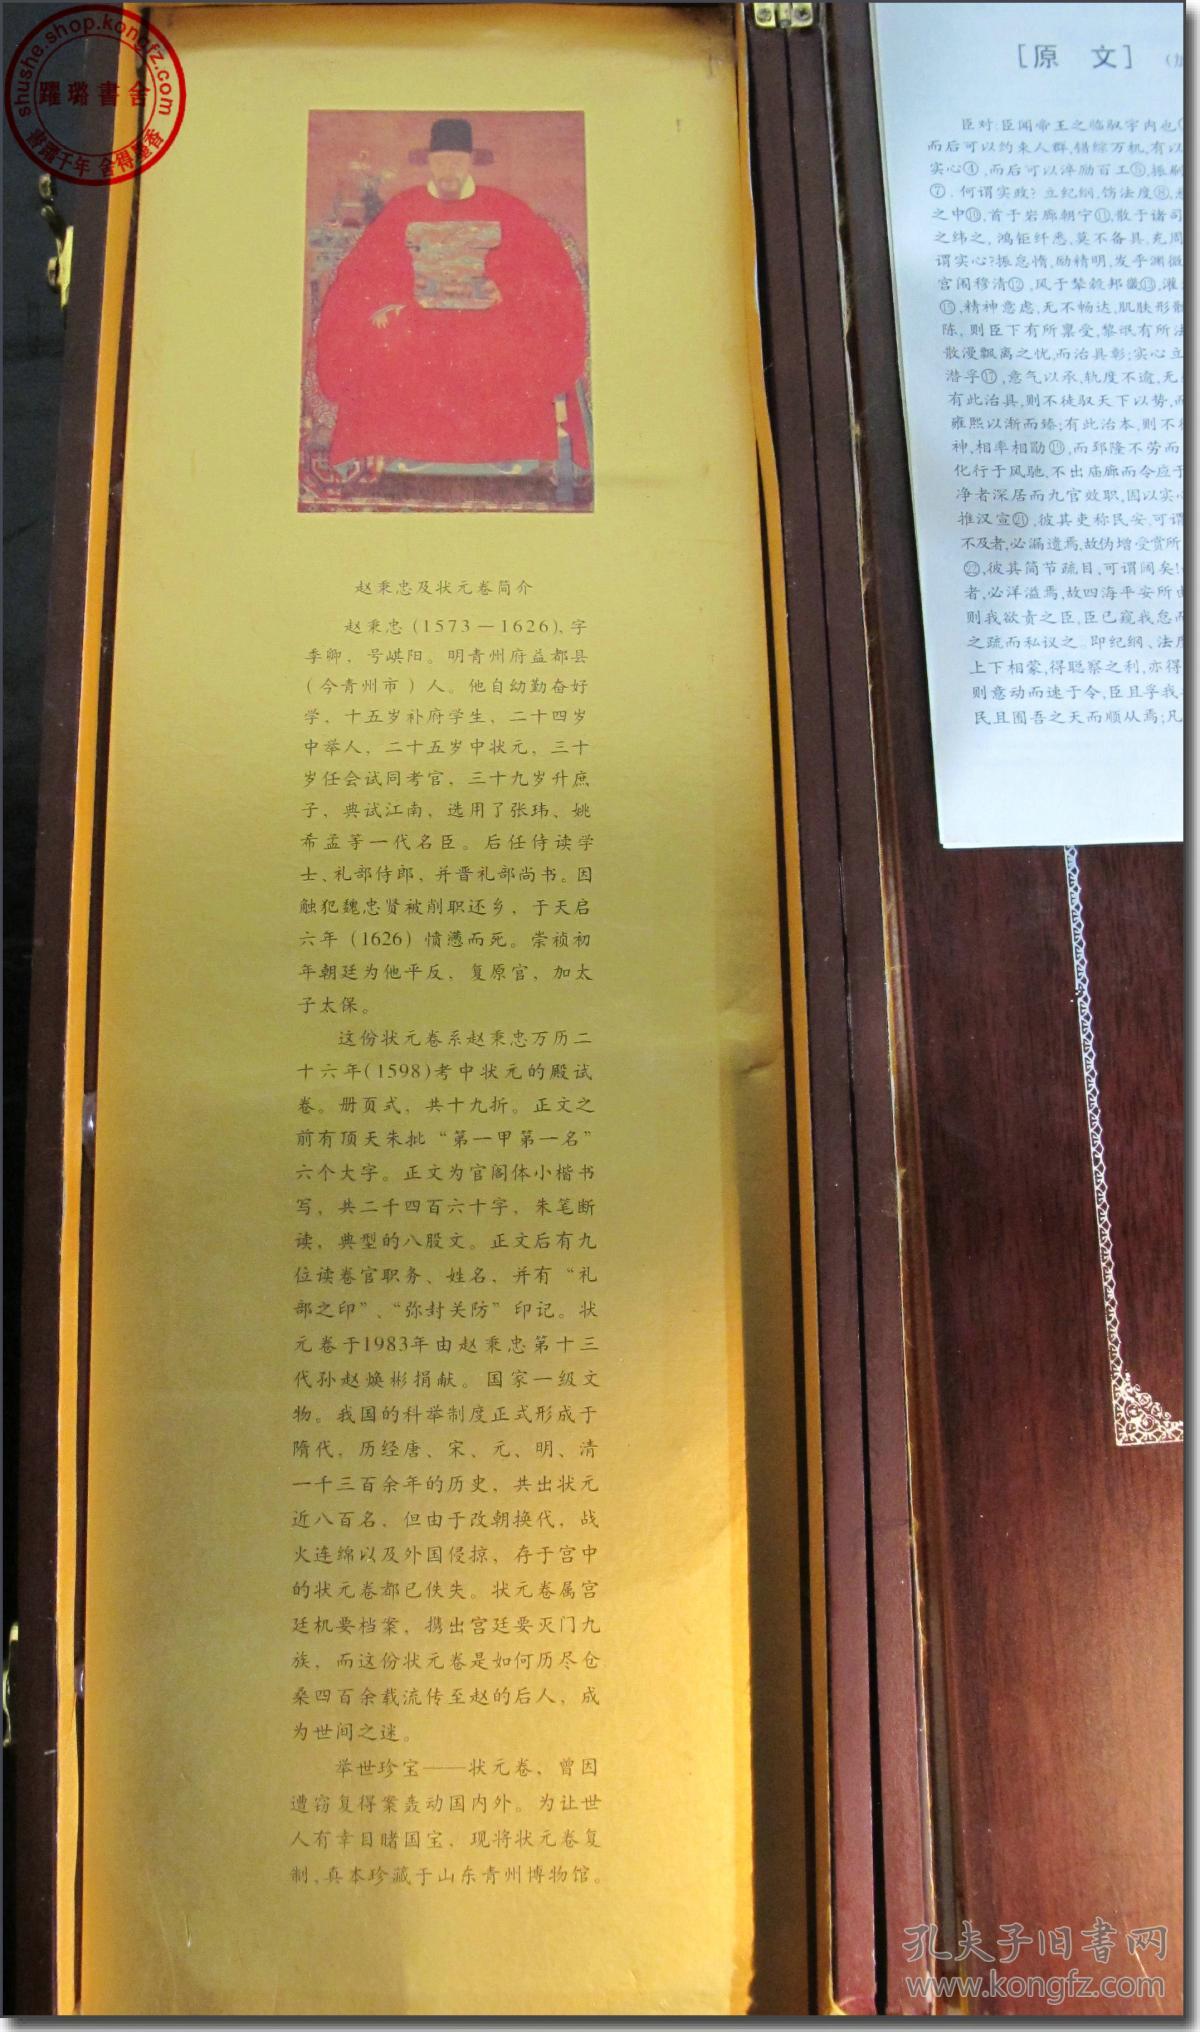 shushe.shop.kongfz.com
躍璐書舍
書躍千年 舍得墨香
赵秉忠及状元卷简介
赵秉忠(1573—1626)、字
季卿，号𡷫阳。明青州府益都县
（今青州市）人。他自幼勤奋好
学，十五岁补府学生，二十四岁
中举人，二十五岁中状元，三十
岁任会试同考官，三十九岁升庶
子，典试江南，选用了张玮、姚
希孟等一代名臣。后任侍读学
士、礼部侍郎，并晋礼部尚书。因
触犯魏忠贤被削职还乡，于天启
六年（1626）愤懑而死。崇祯初
年朝廷为他平反，复原官，加太
子太保。
这份状元卷系赵秉忠万历二
十六年(1598)考中状元的殿试
卷。册页式，共十九折。正文之
前有顶天朱批“第一甲第一名”
六个大字。正文为官阁体小楷书
写，共二千四百六十字，朱笔断
读，典型的八股文。正文后有九
位读卷官职务、姓名，并有“礼
部之印”、“弥封关防”印记。状
元卷于1983年由赵秉忠第十三
代孙赵焕彬捐献。国家一级文
物。我国的科举制度正式形成于
隋代，历经唐、宋、元、明、清
一千三百余年的历史，共出状元
近八百名，但由于改朝换代，战
火连绵以及外国侵掠，存于宫中
的状元卷都已佚失。状元卷属宫
廷机要档案，携出宫廷要灭门九
族，而这份状元卷是如何历尽仓
桑四百余载流传至赵的后人，成
为世间之迷。
举世珍宝——状元卷，曾因
遭窃复得案轰动国内外。为让世
人有幸目睹国宝，现将状元卷复
制，真本珍藏于山东青州博物馆。
［原 文］
臣对：臣闻帝王之临驭宇内也
而后可以约束人群，错综万机，有以
实心④，而后可以淬励百工⑤，振刷
⑦。何谓实政？立纪纲，饬法度⑧，
之中⑩，首于岩廊朝宁⑪，散于诸司
之纬之，鸿钜纤悉，莫不备具，充周
谓实心？振怠惰，励精明，发乎渊微
宫闱穆清⑫，风于辇毂邦畿⑬，灌
⑮，精神意虑，无不畅达，肌肤形骸
陈，则臣下有所禀受，黎氓有所法
散漫飘离之忧，而治具彰；实心立
潜孚⑰，意气以承，轨度不逾，无
有此治具，则不徒驭天下以势，而
雍熙以渐而臻；有此治本，则不
神，相率相勖⑲，而郅隆不劳而
化行于风驰，不出庙廊而令应于
净者深居而九官效职，因以实心
推汉宣㉑，彼其吏称民安，可谓
不及者，必漏遗焉，故伪增受赏所
㉒，彼其简节疏目，可谓阔矣！
者，必洋溢焉，故四海平安所由
则我欲责之臣，臣已窥我怠而
之疏而私议之。即纪纲、法度
上下相蒙，得聪察之利，亦得
则意动而速于令，臣且孚我
民且囿吾之天而顺从焉；凡
孔夫子旧书网
www.kongfz.com